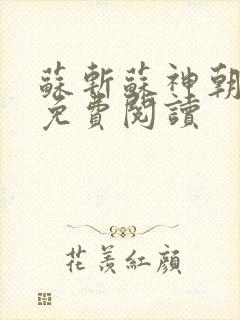 蘇斬蘇神朝
免費閱讀
花羨紅顏